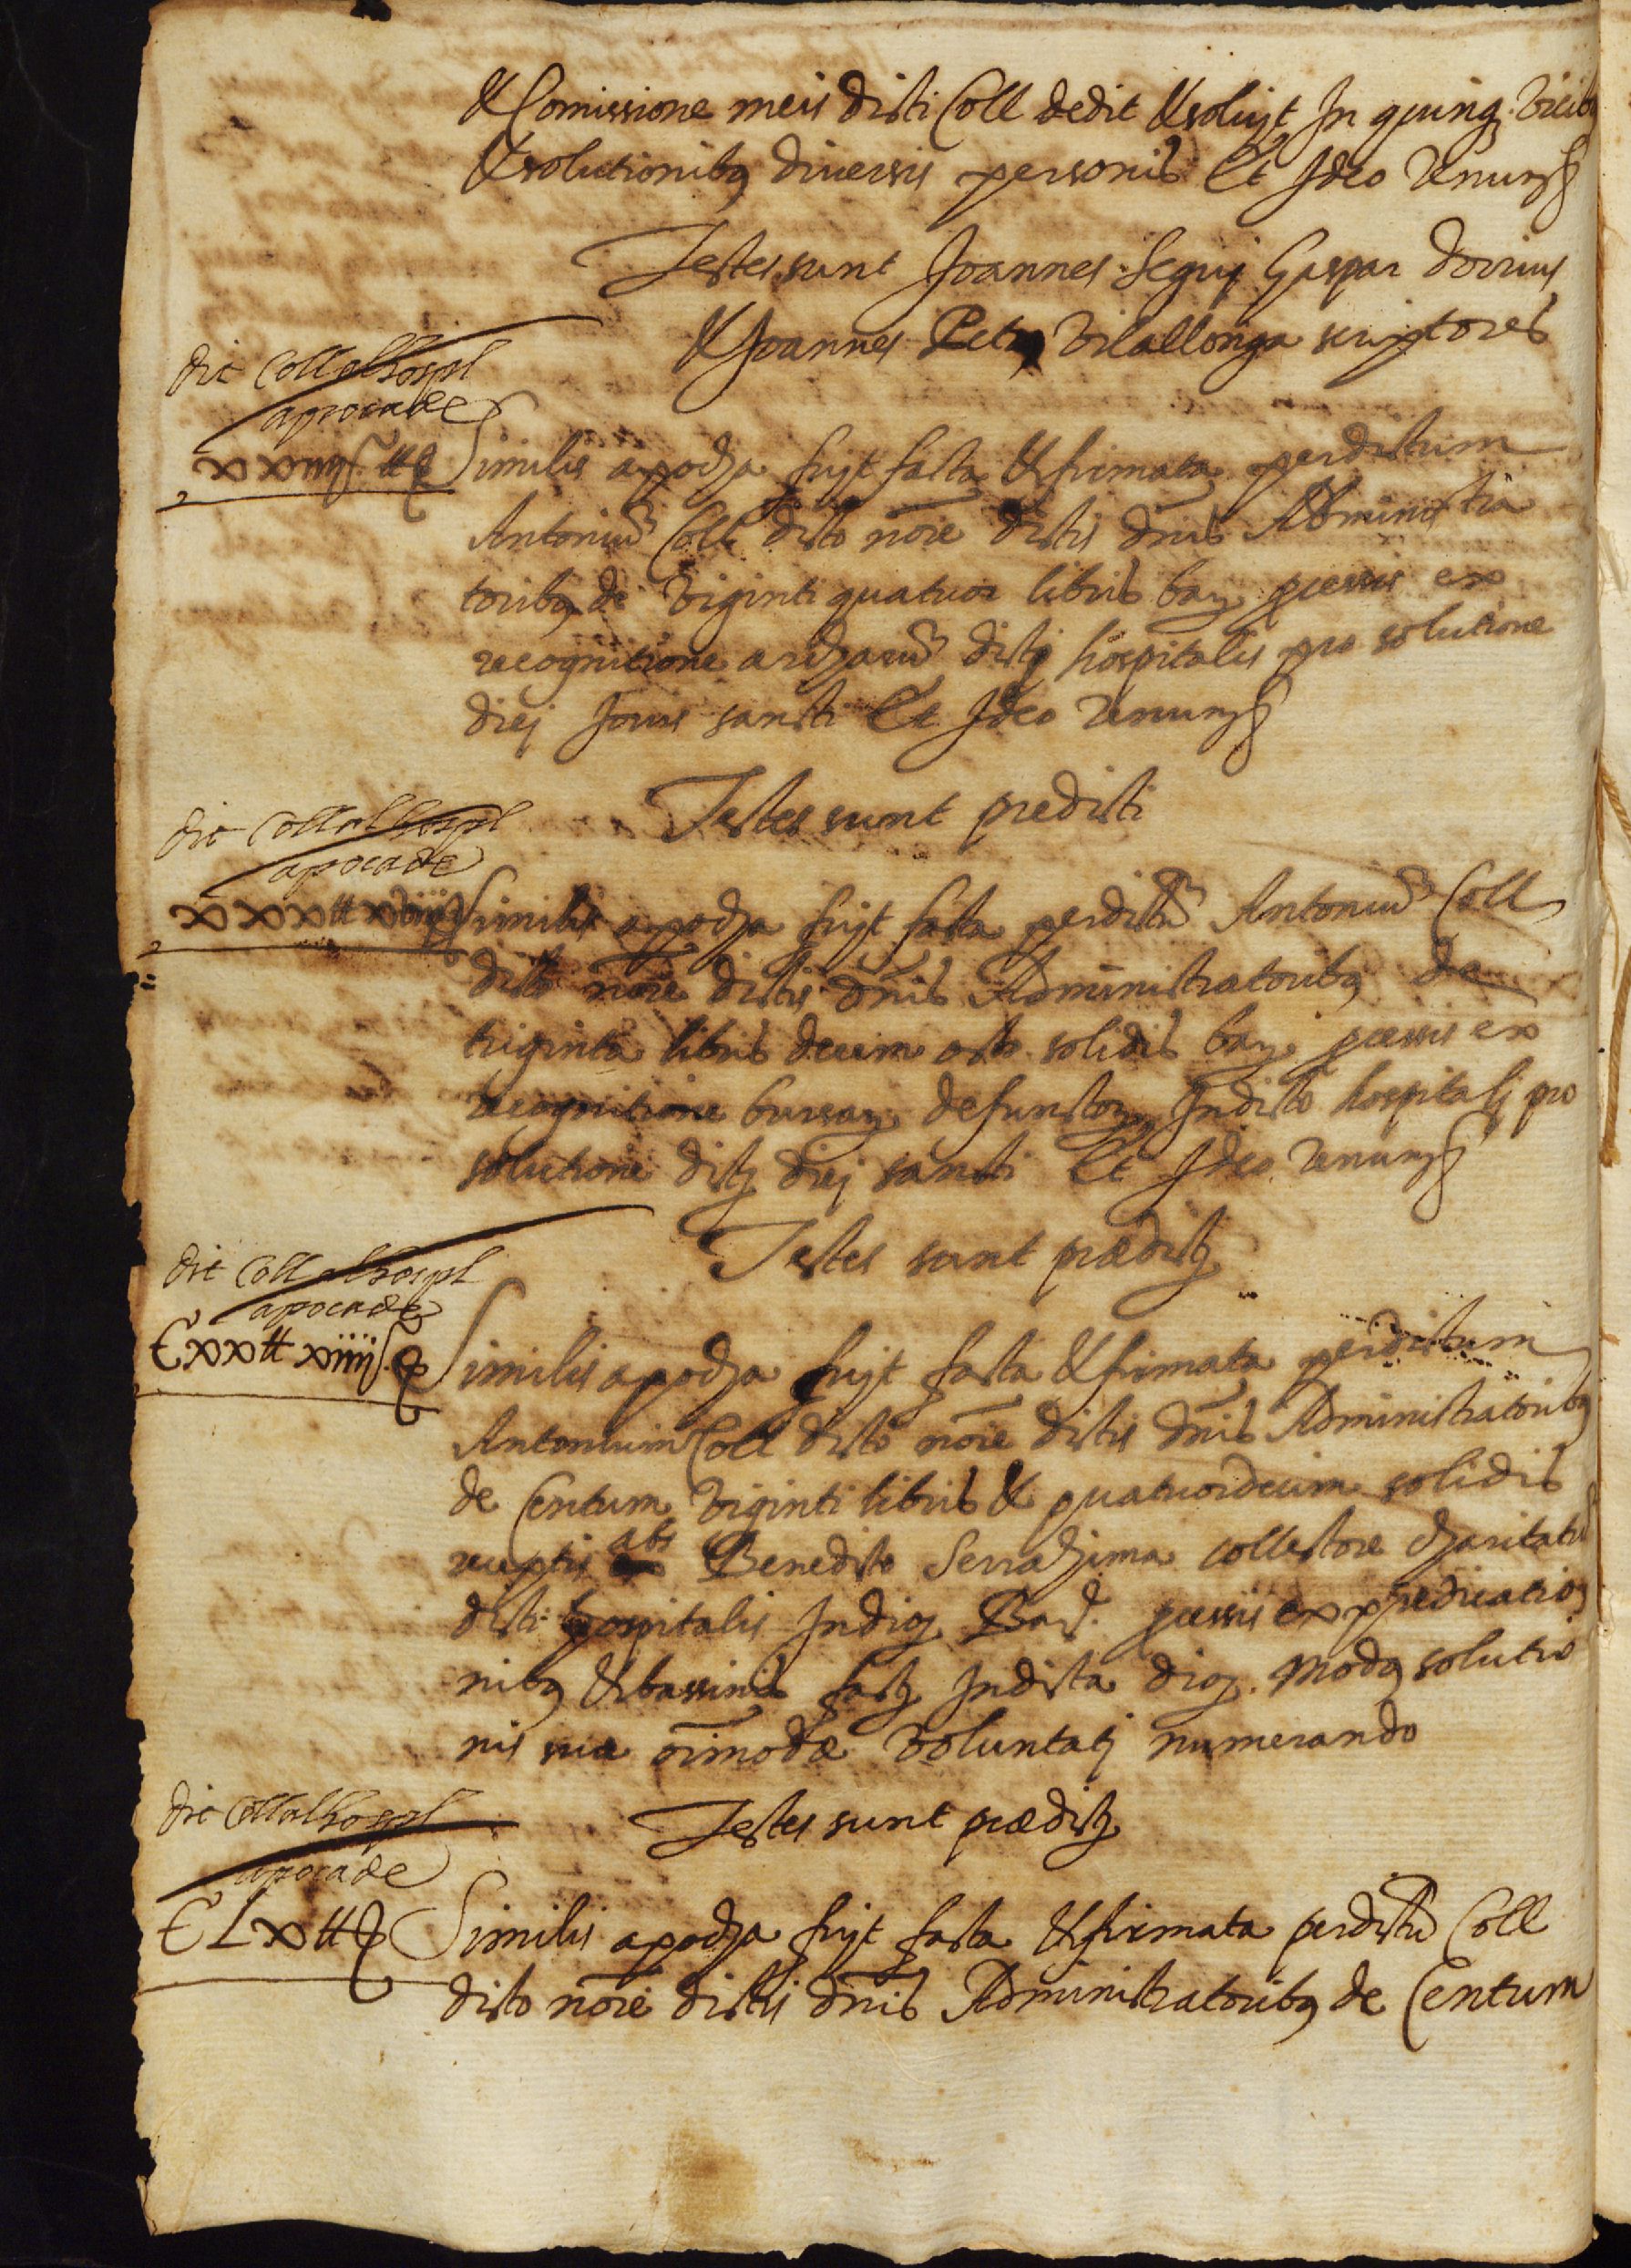 & Comissione meis dicti Coll dedit & soluyt In quinq. vicib9
& solutionib9 diuersis personis Et Ideo Renuns
Testes sunt Joannes Seguj Gaspar dorrius
& Joannes Petrus Vilallonga scriptores
dit Coll al hospl
apoca de
xxiiij ll
Similis apocha fuyt facta & firmata per dictum
Antoniu Coll dicto noie dictis dnis Administra
torib9 de viginti quatuor libris barz. pcessis ex
recognitione archarum dictj hospitalis pro solutione
diej Jouis sancti Et Ideo Renuns
Testes sunt predicti
dit Coll al hospl
apoca de
xxx ll xviij s
Similis apocha fuyt facta per dictu Antoniu Coll
dicto noie dictis dnis Administratorib9 de
triginta libris decem octo solidis barz. pcessis ex
recognitione bursarz defunctorz In dicto hospitalj pro
solutione dictj diej sancti Et Ideo Renuns
Testes sunt prædictj
dit Coll al hospl
apoca de
Cxx ll xiiij s
Similis apocha fuyt facta & firmata per dictum
Antonium Coll dicto noie dictis dnis Administratorib9
de Centum viginti libris & quatuordecim solidis
receptis abs Benedicto Serrachima collectore charitatu
dicti hospitalis In dioj Barc. pcessis ex predicatio
nib9 & bassinis factj In dicta dioj. Mod9 solutio
nis suæ oimodæ Voluntatj numerando
Testes sunt prædictj
dit Coll al hospl
apoca de
CLx ll
Similis apocha fuyt facta & firmata per dictu Coll
dicto noie dictis dnis Administratorib9 de Centum